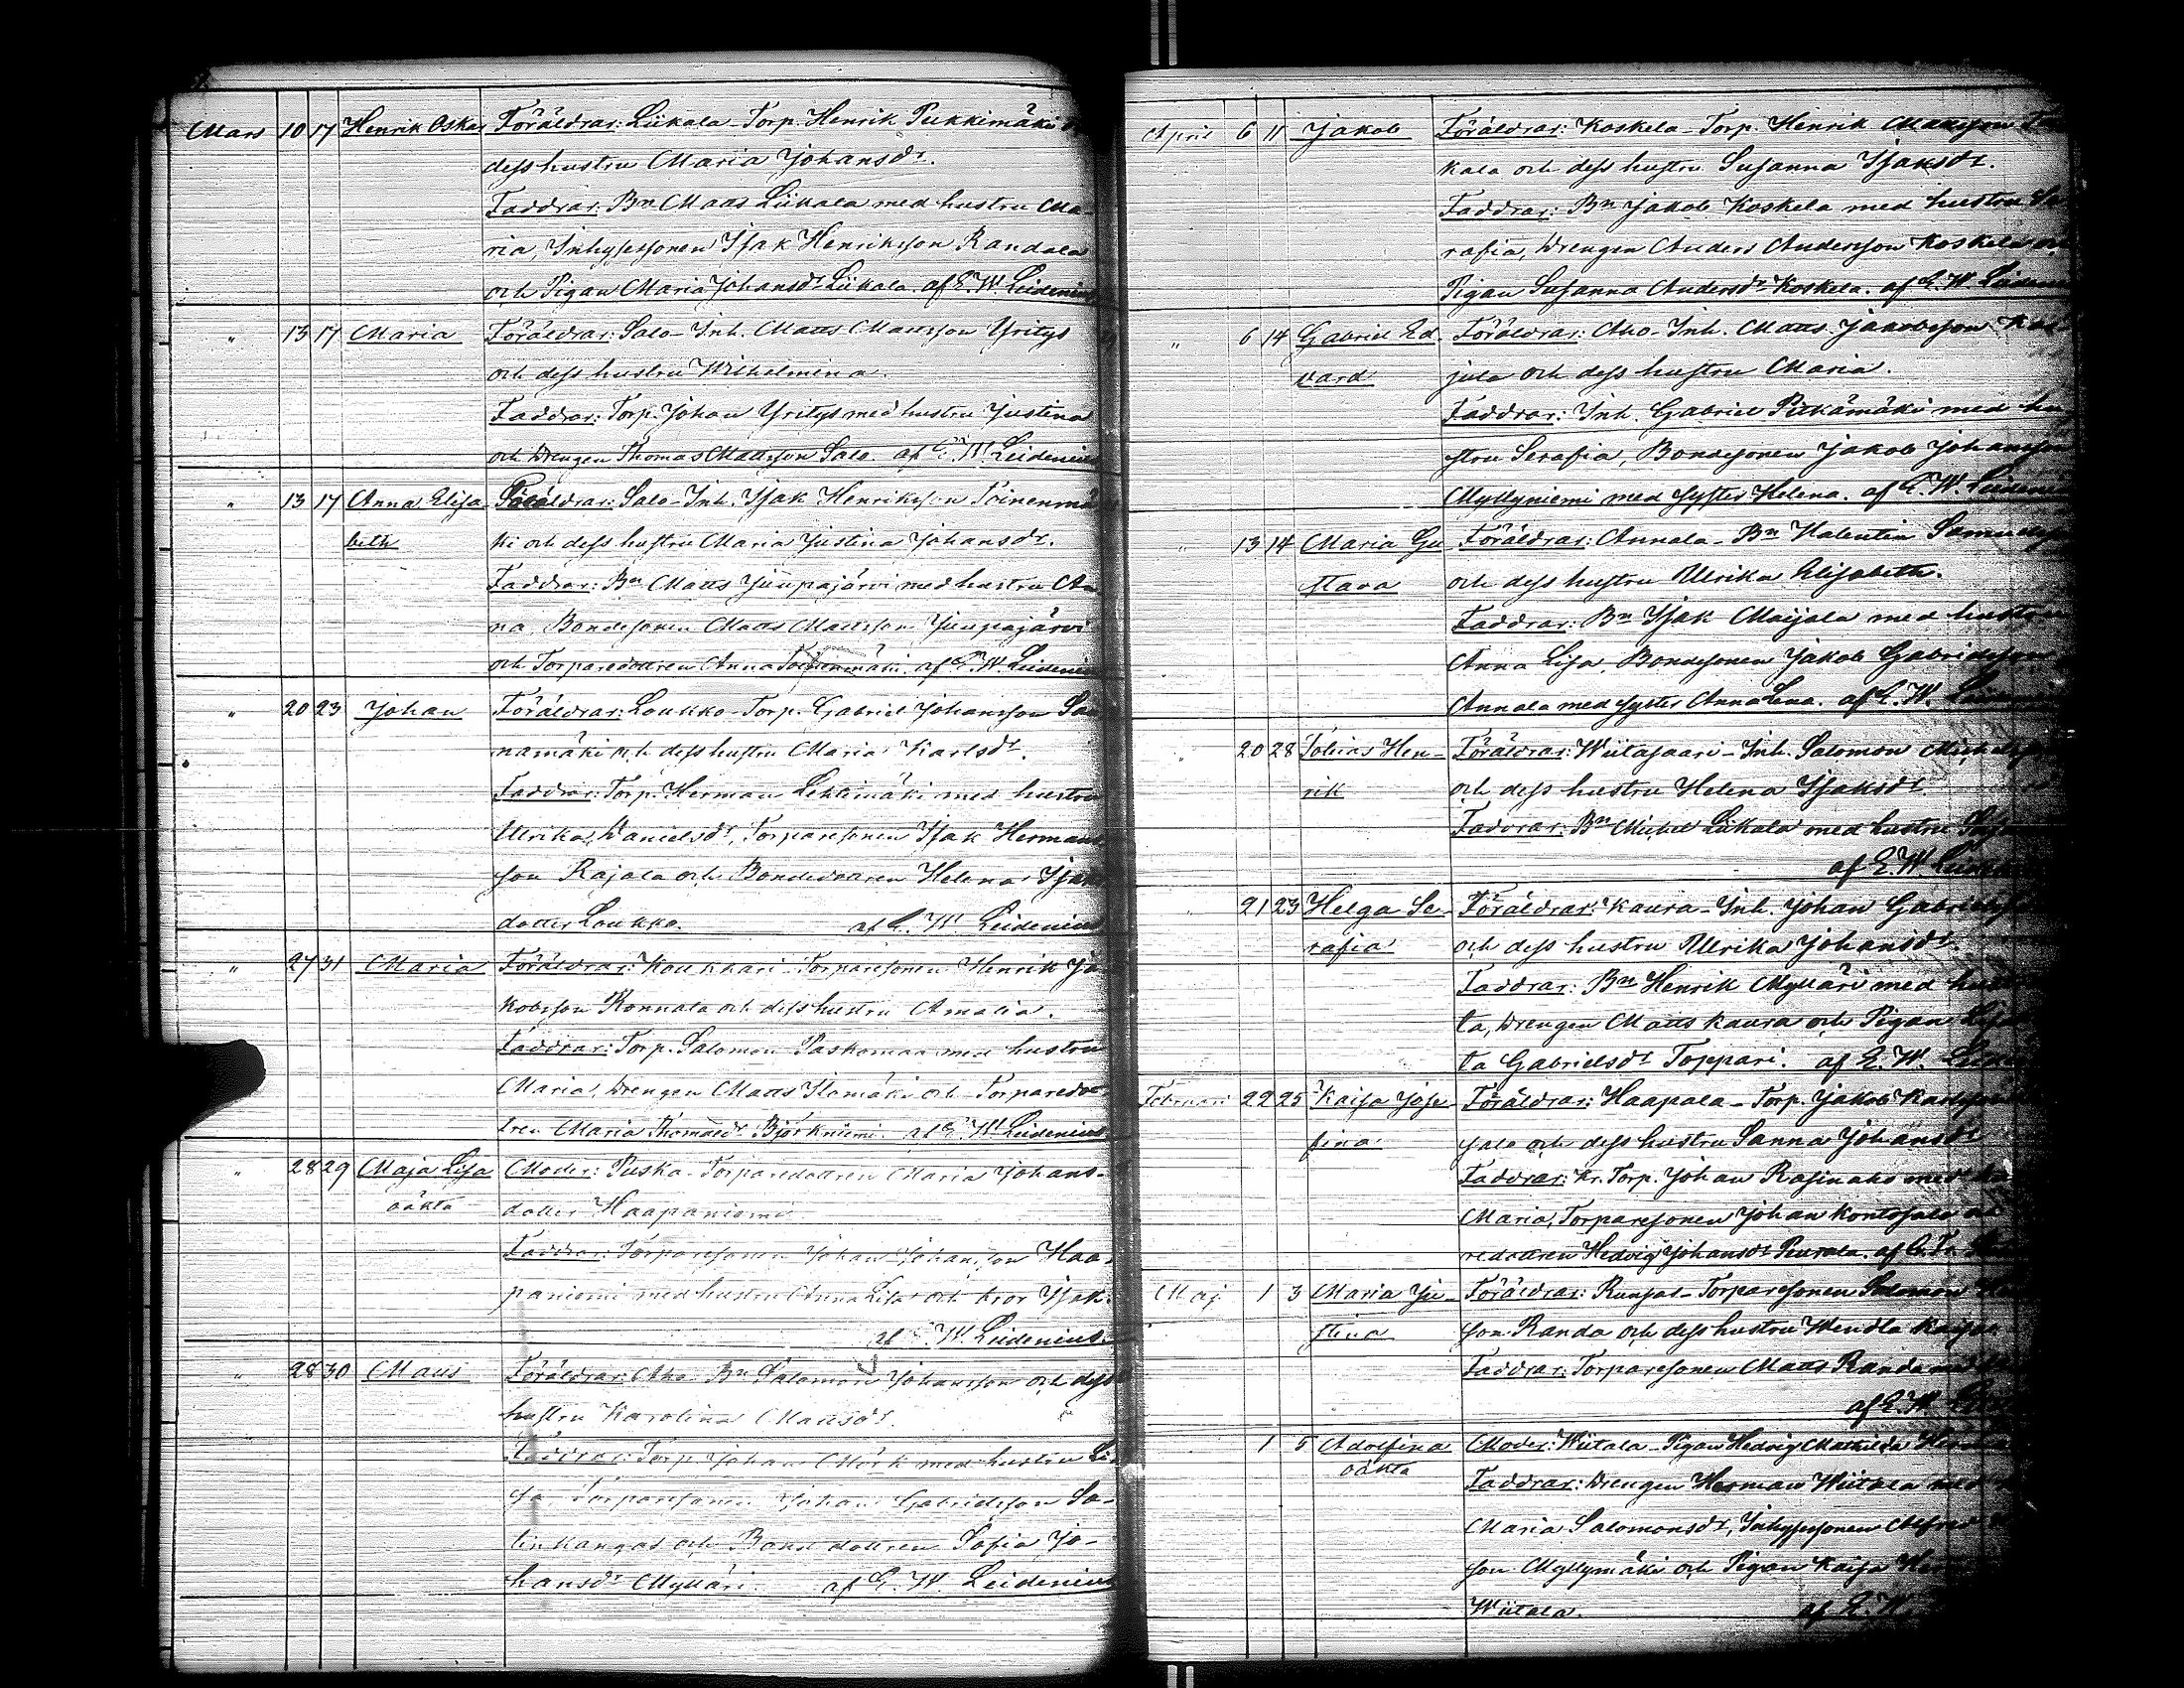 Mars 10 17 Henrik Oskar Föräldrar: Liikala-Torp. Henrik Pukkimäki
dess hustru Maria Johansdr.
Faddrar: Bn Matts Liikala med hustru Ma-
ria, Inhysessonen Isak Henriksson Randala
och Pigan Maria Johansdr Liikala. af E. W. Leidenius
" 13 17 Maria Föräldrar: Salo-Inh. Matts Mattsson Yritys
och dess hustru Wilhelmina.
Faddrar: Torp. Johan Yritys med hustru Justina
och Drengen Thomas Mattsson Salo. af E. W. Leidenius
" 13 17 Anna Elisa- Föräldrar: Salo-Inh. Isak Henriksson Toinenmä
beth ki och dess hustru Maria Justina Johansdr.
Faddrar: Bn Matts Juupajärvi med hustru An
na, Bondesonen Matts Mattsson Juupajärvi
och Torparedottren Anna Toinenmäki. af E. W. Leidenius
" 20 23 Johan Föräldrar: Loukko-Torp. Gabriel Johansson Sau
namäki och dess hustru Maria Karlsdr.
Faddrar: Torp. Herman Lehtimäki med hustru
Ulrika Danielsdr, Torparesonen Isak Hermans
son Rajala och Bondedottren Helena Isaks
dotter Loukko. af E. W. Leidenius
" 27 31 Maria Föräldrar: Koukkari-Torparesonen Henrik Ja
kobsson Konnala och dess hustru Amalia.
Faddrar: Torp. Salomon Paskomaa med hustru
Maria, Drengen Matts Ilomäki och Torparedot
tren Maria Thomasdr Björkniemi. af E. W. Leidenius
" 28 29 Maja Lisa Moder: Puska-Torparedottren Maria Johans-
oäkta dotter Haapaniemi
Faddrar: Torparesonen Johan Johansson Haa-
paniemi med hustru Anna Lisa och bror Isak.
af E. W. Leidenius.
" 28 30 Matts Föräldrar: Aho-Bn Salomon Johansson och dess
hustru Karolina Mattsdr.
Faddrar: Torp. Johan Mörk med hustru Li
sa, Torparesonen Johan Gabrielsson Sa-
linkangas och Bondedottren Sofia Jo-
hansdr Mylläri. af E. W. Leidenius
April 6 11 Jakob Föräldrar: Koskela-Torp. Henrik
kala och dess hustru Susanna Isaksdr.
Faddrar: Bn Jakob Koskela med hustru Se
rafia, Drengen Anders Andersson Koskela och
Pigan Susanna Andersdr Koskela. af E. W. Leidenius
" 6 14 Gabriel Ed- Föräldrar: Aho-Inh. Matts Jakobsson
vard jula och dess hustru Maria.
Faddrar: Inh. Gabriel Pitkämäki med hu
stru Serafia, Bondesonen Jakob Johansson
Myllyniemi med syster Helena. af E. W. Leidenius
" 13 14 Maria Gu- Föräldrar: Annala-Bn Valentin Samuelsson
stava och dess hustru Ulrika Elisabeth.
Faddrar: Bn Isak Maijala med hustru
Anna Lisa, Bondesonen Jakob Gabrielsson
Annala med syster Anna Lena. af E. W. Leidenius
" 20 28 Tobias Hen- Föräldrar: Wiitasaari-Inh. Salomon Michelsson
rik och dess hustru Helena Isaksdr
Faddrar: Bn Michel Liikala med hustru
af E. W. Leidenius
" 21 23 Helga Se- Föräldrar: Kaura-Inh. Johan Gabrielsson
rafia och dess hustru Ulrika Johansdr
Faddrar: Bn Henrik Mylläri med
ta, Drengen Matts Kaura och Pigan
ta Gabrielsdr Toppari. af E. W. Leidenius
Februari 22 25 Kaisa Jose- Föräldrar: Haapala-Torp. Jakob Karlsson
fina salo och dess hustru Sanna Johansdr
Faddrar: Kr. Torp. Johan Rasinaho med
Maria, Torparesonen Johan Kontosalo
redottren Hedvig Johansdr Peurala. af
Maj 1 3 Maria Ju- Föräldrar: Runsas-Torparesonen Salomon
stina son Randa och dess hustru Wendla
Faddrar: Torparesonen Matts Randa med
af E. W.
1 5 Adolfina Moder: Wiitala-Pigan Hedvig Mathilda
oäkta Faddrar: Drengen Herman Wiitala med
Maria Salomonsdr, Inhysessonen Alfred
son Myllymäki och Pigan Kaisa
Wiitala. af E. W.